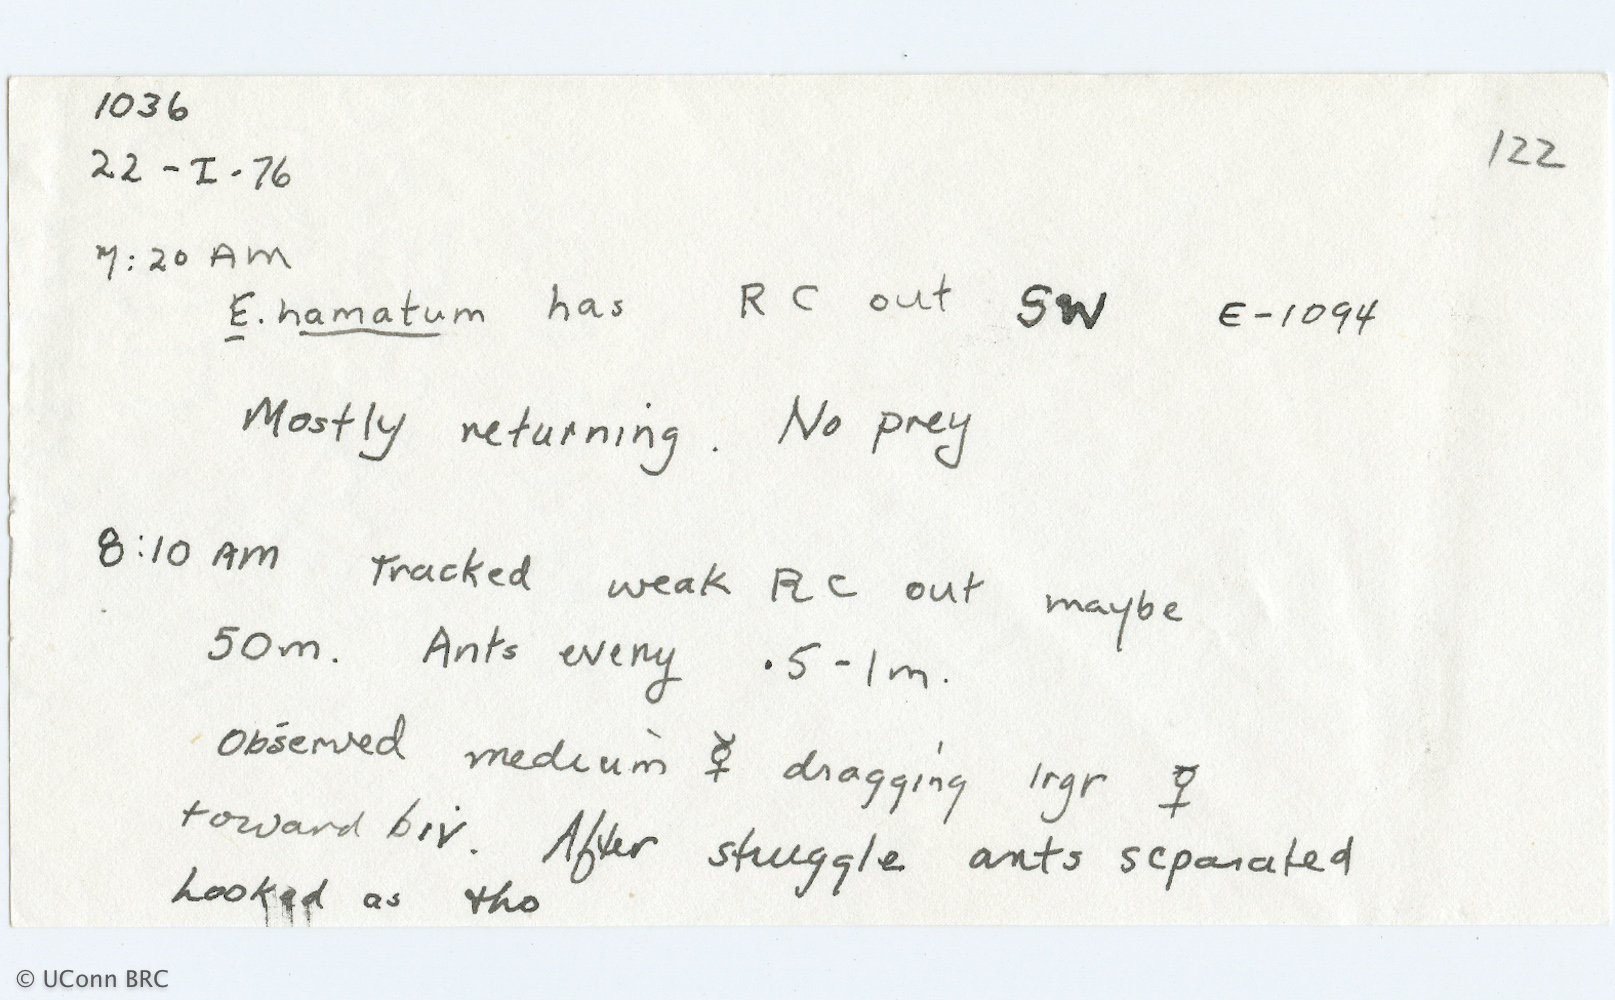 1036
122
22-I-76
7:20 AM
E. hamatum has RC out SW E-1094
Mostly returning. No prey
8:10 AM Tracked weak RC out maybe
50m. Ants every .5-1m.
Observed medium ☿ dragging lrgr ☿
toward biv. After stuggle ants separated
Looked as tho
© UConn BRC